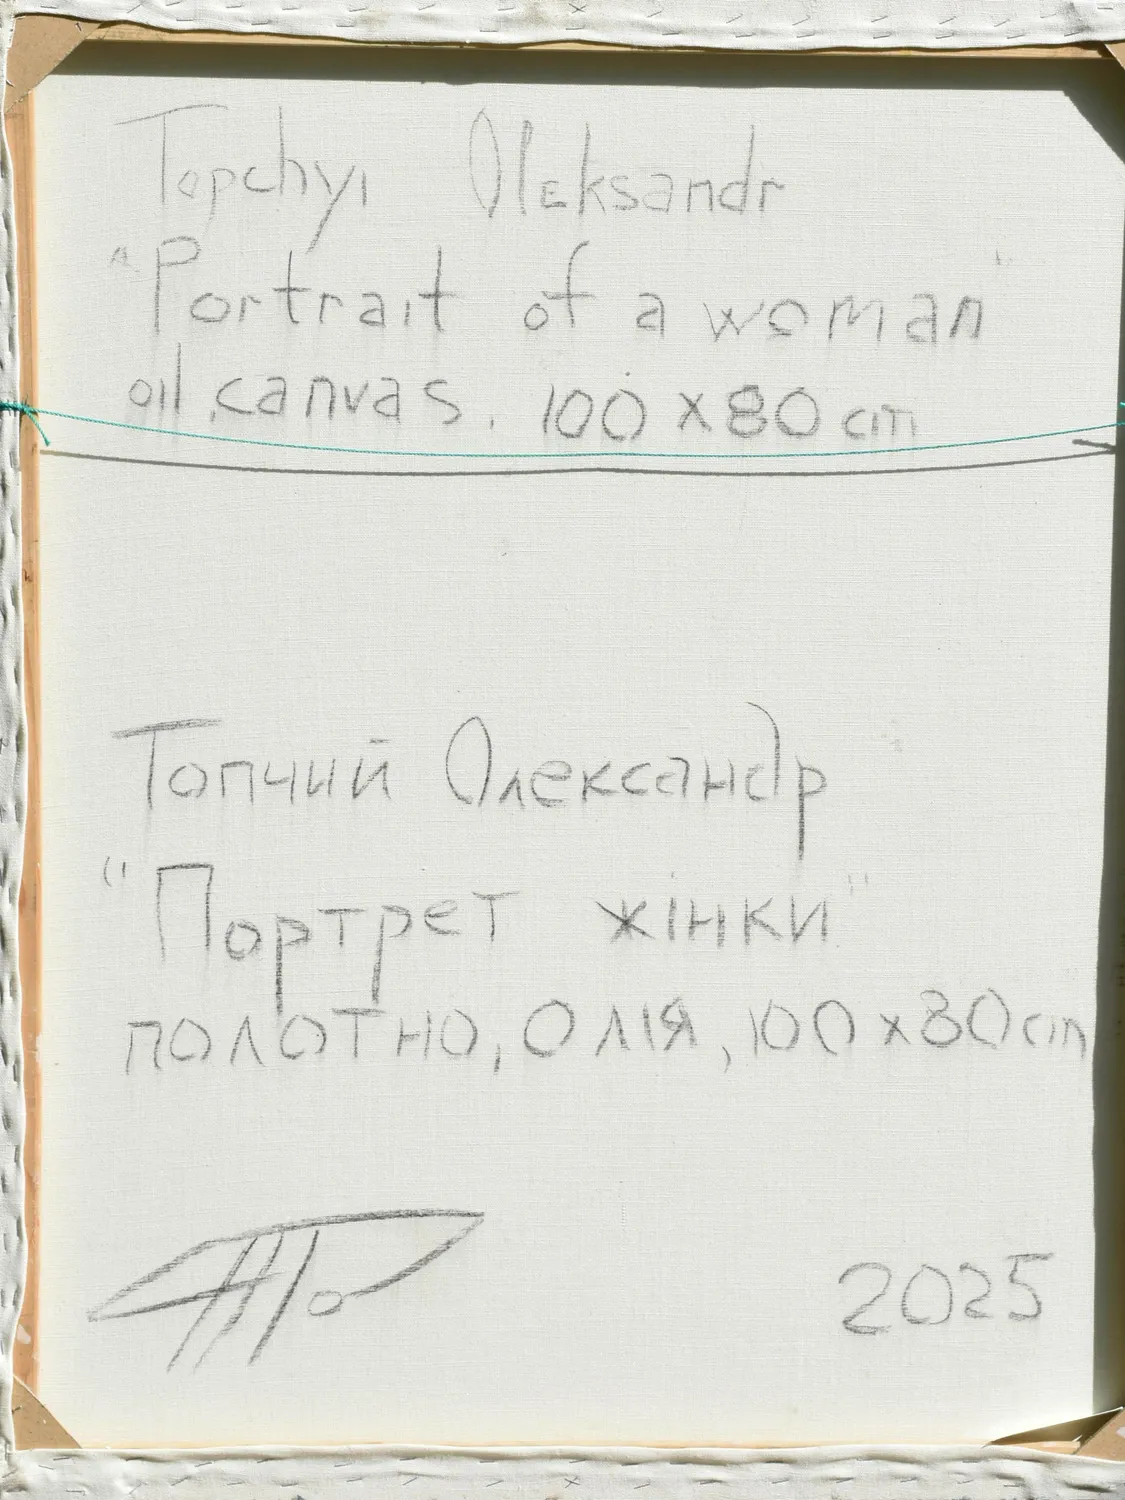 Topchyi Oleksandr
"Portrait of a woman"
oil, canvas, 100 x 80 cm
Топчий Олександр
"Портрет жінки"
полотно, олія, 100 x 80 cm
2025